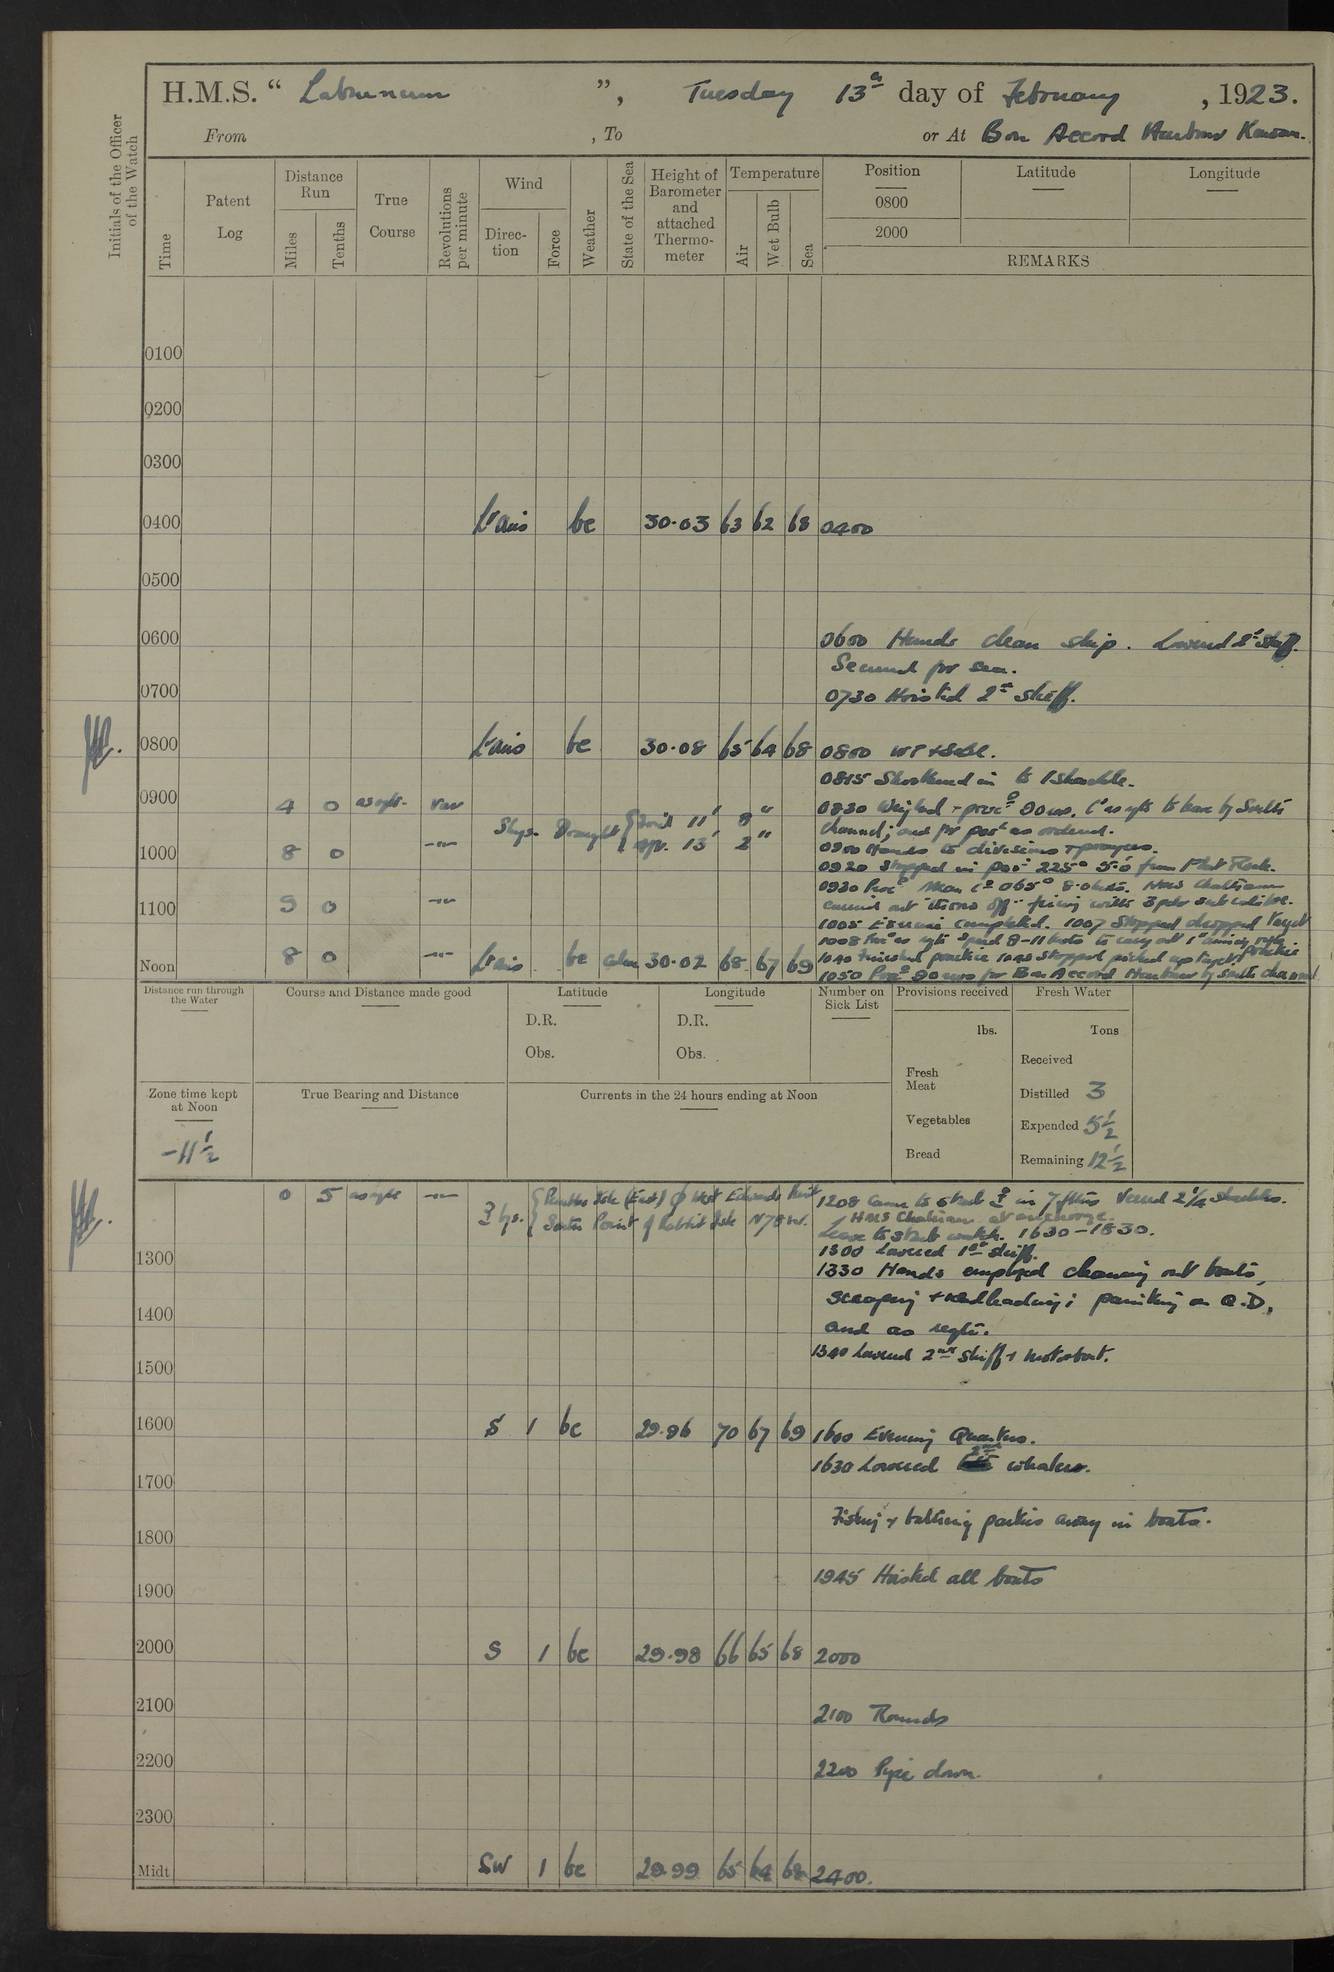 H.M.S. “ Laburnum ”, Tuesday 13th day of February, 1923.
From , To or At Bon Accord Harbour Kawau.
Initials of the Officer of the Watch
Time
Patent Log
Distance Run
Miles
Tenths
True Course
Revolutions per minute
Wind
Direction
Force
Weather
State of the Sea
Height of Barometer and attached Thermometer
Temperature
Air
Wet Bulb
Sea
Position
0800
2000
Latitude
Longitude
REMARKS
0100
0200
0300
0400 Lt airs bc 30.03 63 62 68 0400
0500
0600 0600 Hands clean ship. Lowered 2nd skiff.
Secured for sea.
0700 0730 Hoisted 2nd skiff.
0800 Lt airs bc 30.08 65 64 68 0800
0815 Shortened in to 1 shackle.
0900 4 0 as reqte. var 0830 Weighed + procd 90 revs. Co as reqte to leave by South
Ships Draught { Ford 11' 8"
Aft. 13' 2"
channel; and for posn as ordered.
1000 8 0 0900 Hands to divisions + prayers.
0920 Stopped in posn 225° 5.0 from Flat Rock.
0930 Procd Mean Co 065° 8.0 kts. HMS Chatham
1100 9 0 carried out throw off firing with 3 pdr sub calibre.
1005 Exercise completed. 1007 Stopped dropped target
1008 Procd as reqte speed 8-11 knots to carry out 1" aiming rifle practice
Noon 8 0 Lt airs bc calm 30.02 68 67 69 1040 Finished practice 1045 Stopped picked up target
1050 Procd 90 revs for Bon Accord Harbour by South channel.
Distance run through the Water
Course and Distance made good
Latitude
D.R.
Obs.
Longitude
D.R.
Obs.
Number on Sick List
Provisions received
lbs.
Fresh Meat
Vegetables
Bread
Fresh Water
Tons
Received
Distilled 3
Expended 5½
Remaining 12½
Zone time kept at Noon
-11½
True Bearing and Distance
Currents in the 24 hours ending at Noon
0 5 as reqte 1208 Came to stbd in 7 fms Veered 2¼ shackles.
HMS Chatham at anchorage.
South Point of Rabbit Isle N78W.
Leave to stbd watch. 1630-1830.
1300 Lowered 1st skiff.
1300 1330 Hands employed cleaning out boats,
scraping + redleading; painting on Q.D,
1400 and as reqte.
1340 Lowered 2nd skiff + motorboat.
1500
1600 S 1 bc 29.96 70 67 69 1600 Evening Quarters.
1630 Lowered 2nd whaler.
1700
Fishing + bathing parties away in boats.
1800
1945 Hoisted all boats
1900
2000 S 1 bc 29.98 66 65 68 2000
2100 2100 Rounds
2200 2200 Pipe down.
2300
Midt SW 1 bc 29.99 65 64 68 2400.